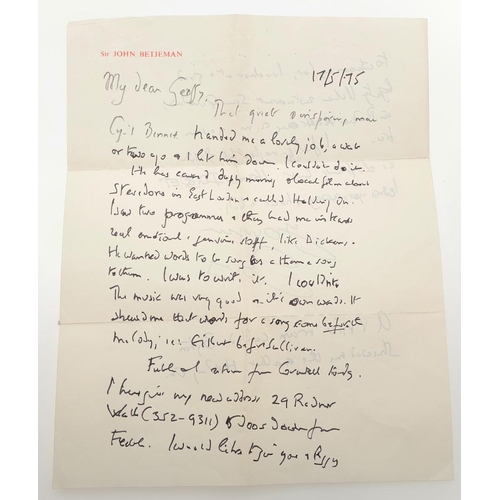 Sir JOHN BETJEMAN
17/5/75
My dear Geoff,
That quiet man
Cyril Bennett handed me a lovely job, a week
or two ago & I let him down. I couldn't do it.
He has a deeply moving local film about
Stevedores in East London called Holding On.
I saw two programmes & they had me in tears
real emotional & genuine stuff, like Dickens.
He wanted words to be sung as a theme song
to them. I was to write it. I couldn't.
The music was very good in its own words. It
showed me that words for a song come before the
melody, i.e: Gilbert before Sullivan.
return from Cornwall today.
I here give my new address 29 Radnor
Walk (352-9311) 5 doors down from
I would like to give you &